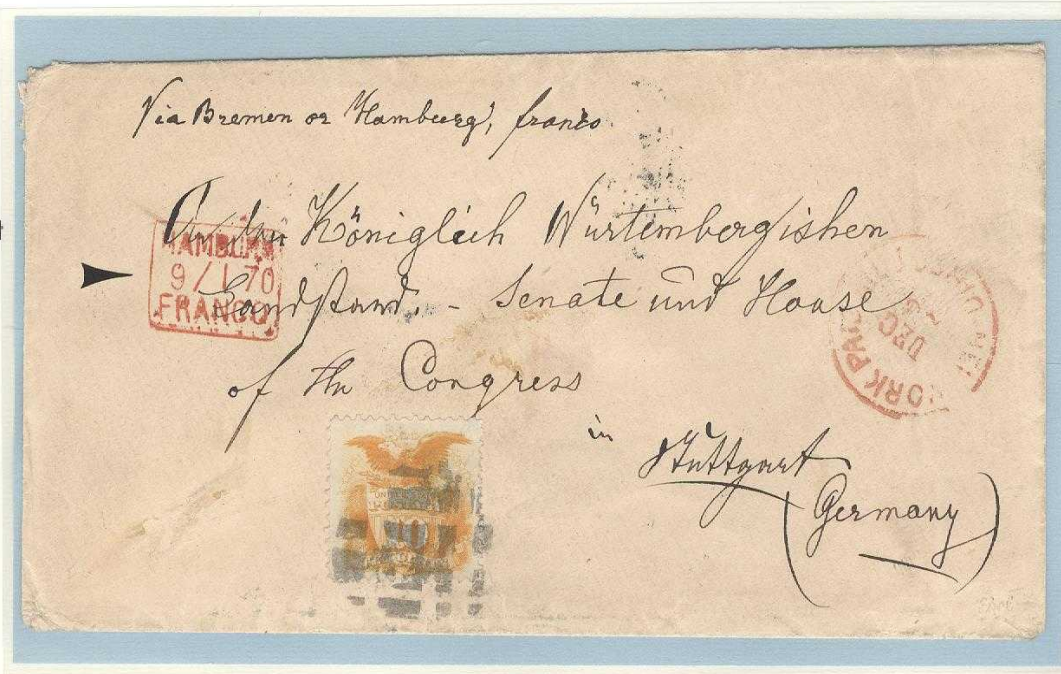 Via Bremen or Hamburg, franco
An den Königlich Würtembergishen
Landstand. - Senate und House
of the Congress
in Stuttgart
(Germany)
HAMBURG
9 / 1. 70
FRANCO
YORK PAID
DEC
10